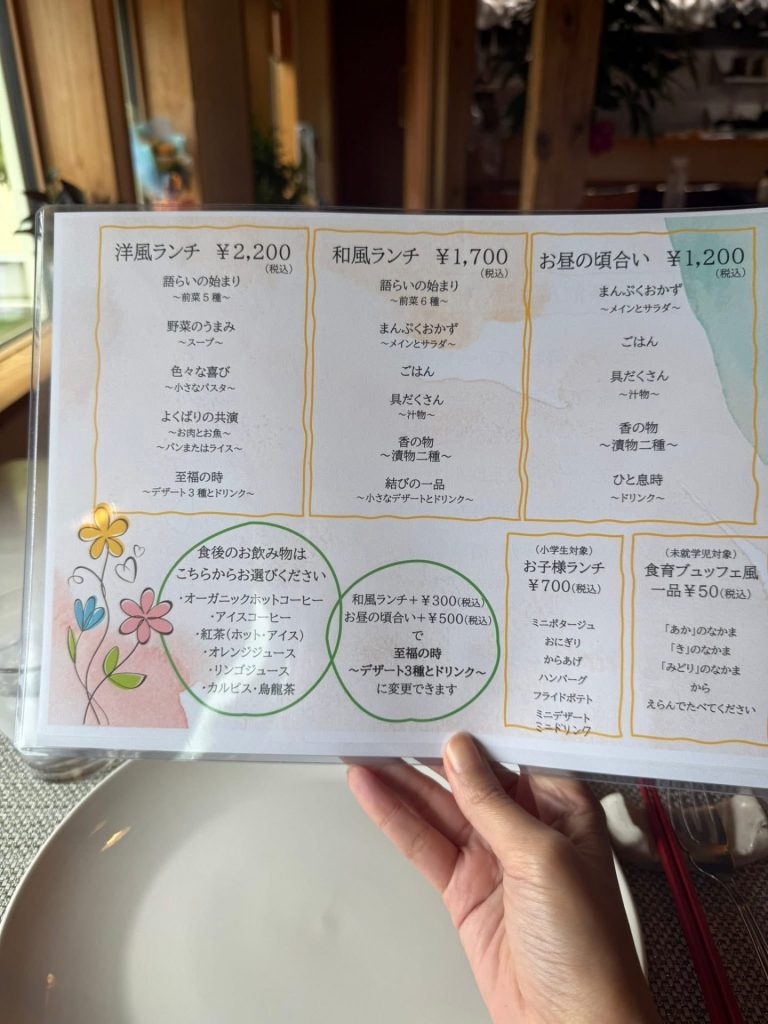 洋風ランチ ¥2,200
(税込)
語らいの始まり
～前菜5種～
野菜のうまみ
～スープ～
色々な喜び
～小さなパスタ～
よくばりの共演
～お肉とお魚～
～パンまたはライス～
至福の時
～デザート3種とドリンク～
和風ランチ ¥1,700
(税込)
語らいの始まり
～前菜6種～
まんぷくおかず
～メインとサラダ～
ごはん
具だくさん
～汁物～
香の物
～漬物二種～
結びの一品
～小さなデザートとドリンク～
お昼の頃合い ¥1,200
(税込)
まんぷくおかず
～メインとサラダ～
ごはん
具だくさん
～汁物～
香の物
～漬物二種～
ひと息時
～ドリンク～
食後のお飲み物は
こちらからお選びください
・オーガニックホットコーヒー
・アイスコーヒー
・紅茶(ホット・アイス)
・オレンジジュース
・リンゴジュース
・カルピス・烏龍茶
和風ランチ＋¥300(税込)
お昼の頃合い＋¥500(税込)
で
至福の時
～デザート3種とドリンク～
に変更できます
(小学生対象)
お子様ランチ
¥700(税込)
ミニポタージュ
おにぎり
からあげ
ハンバーグ
フライドポテト
ミニデザート
ミニドリンク
(未就学児対象)
食育ブュッフェ風
一品¥50(税込)
「あか」のなかま
「き」のなかま
「みどり」のなかま
から
えらんでたべてください